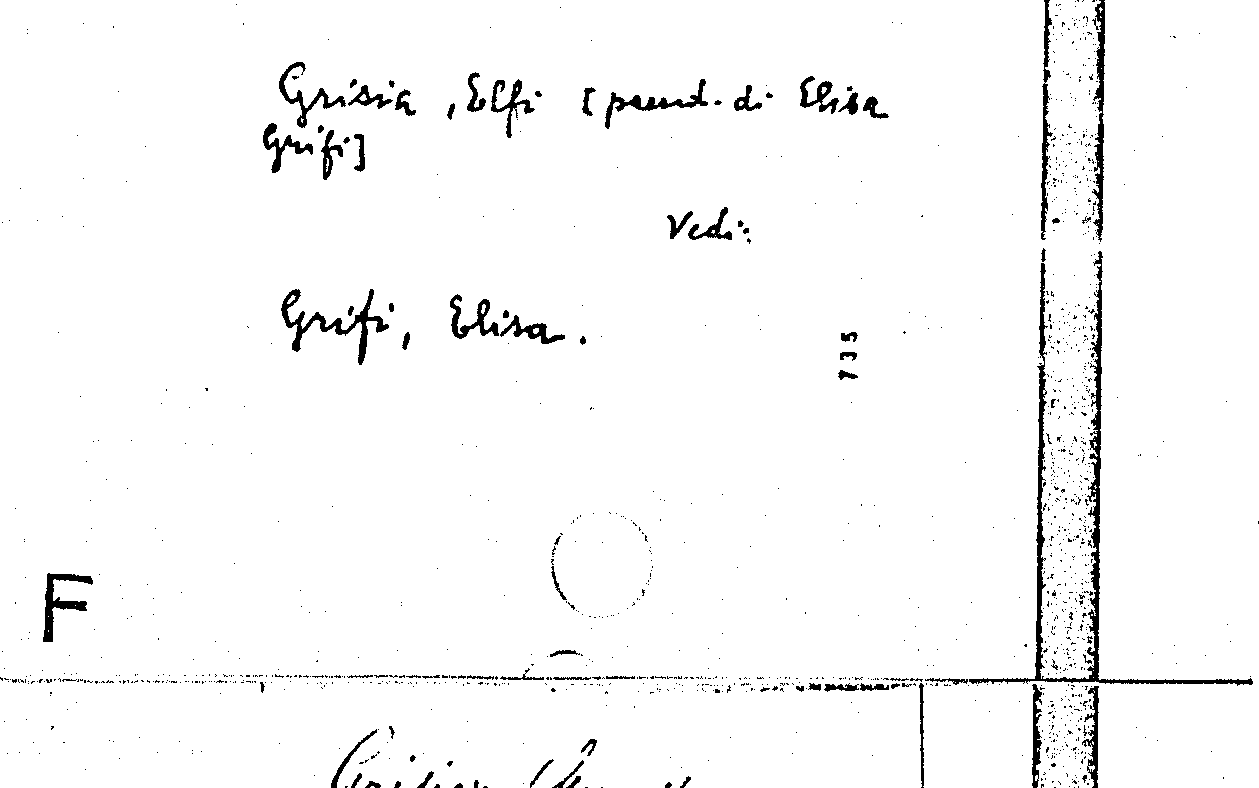 Grisia, Elfi [pseud. di Elisa
Grifi]
Vedi:
Grifi, Elisa.
735
F